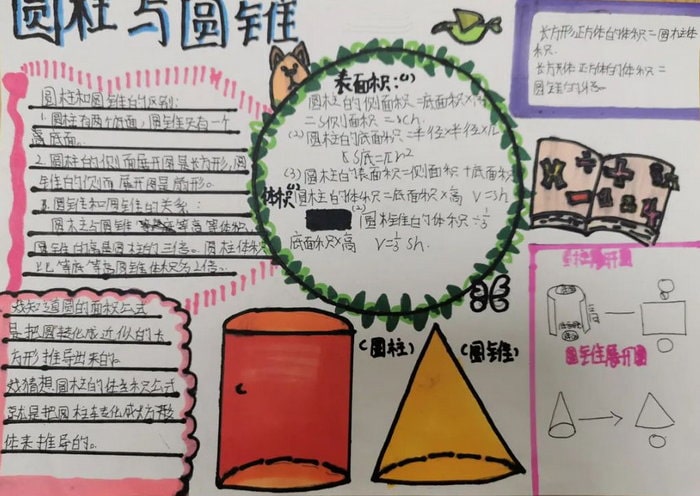 圆柱与圆锥
圆柱和圆锥的区别:
1.圆柱有两个底面,圆锥只有一个
底面。
2.圆柱的侧面展开图是长方形,圆
锥的侧面展开图是扇形。
3.圆锥和圆柱的关系:
圆柱与圆锥等高等体积,
圆锥的高是圆柱的三倍。圆柱体积
比等底等高圆锥体积多2倍。
我知道圆的面积公式
是把圆转化成近似的长
方形推导出来的。
我猜想圆柱的体积公式
就是把圆柱转化成长方形
体来推导的。
表面积:(1)
圆柱的侧面积=底面积×高
=S侧面积=
(2)圆柱的底面积=半径×半径×π
S底=πr²
(3)圆柱的表面积=侧面积+底面积
体积(1)圆柱的体积=底面积×高 V=sh
(2)圆锥的体积=1/3
底面积×高 V=1/3 Sh.
(圆柱)
(圆锥)
长方形正方体的体积=圆柱体
积.
长方形体正方体的体积=
圆锥的
圆锥展开图